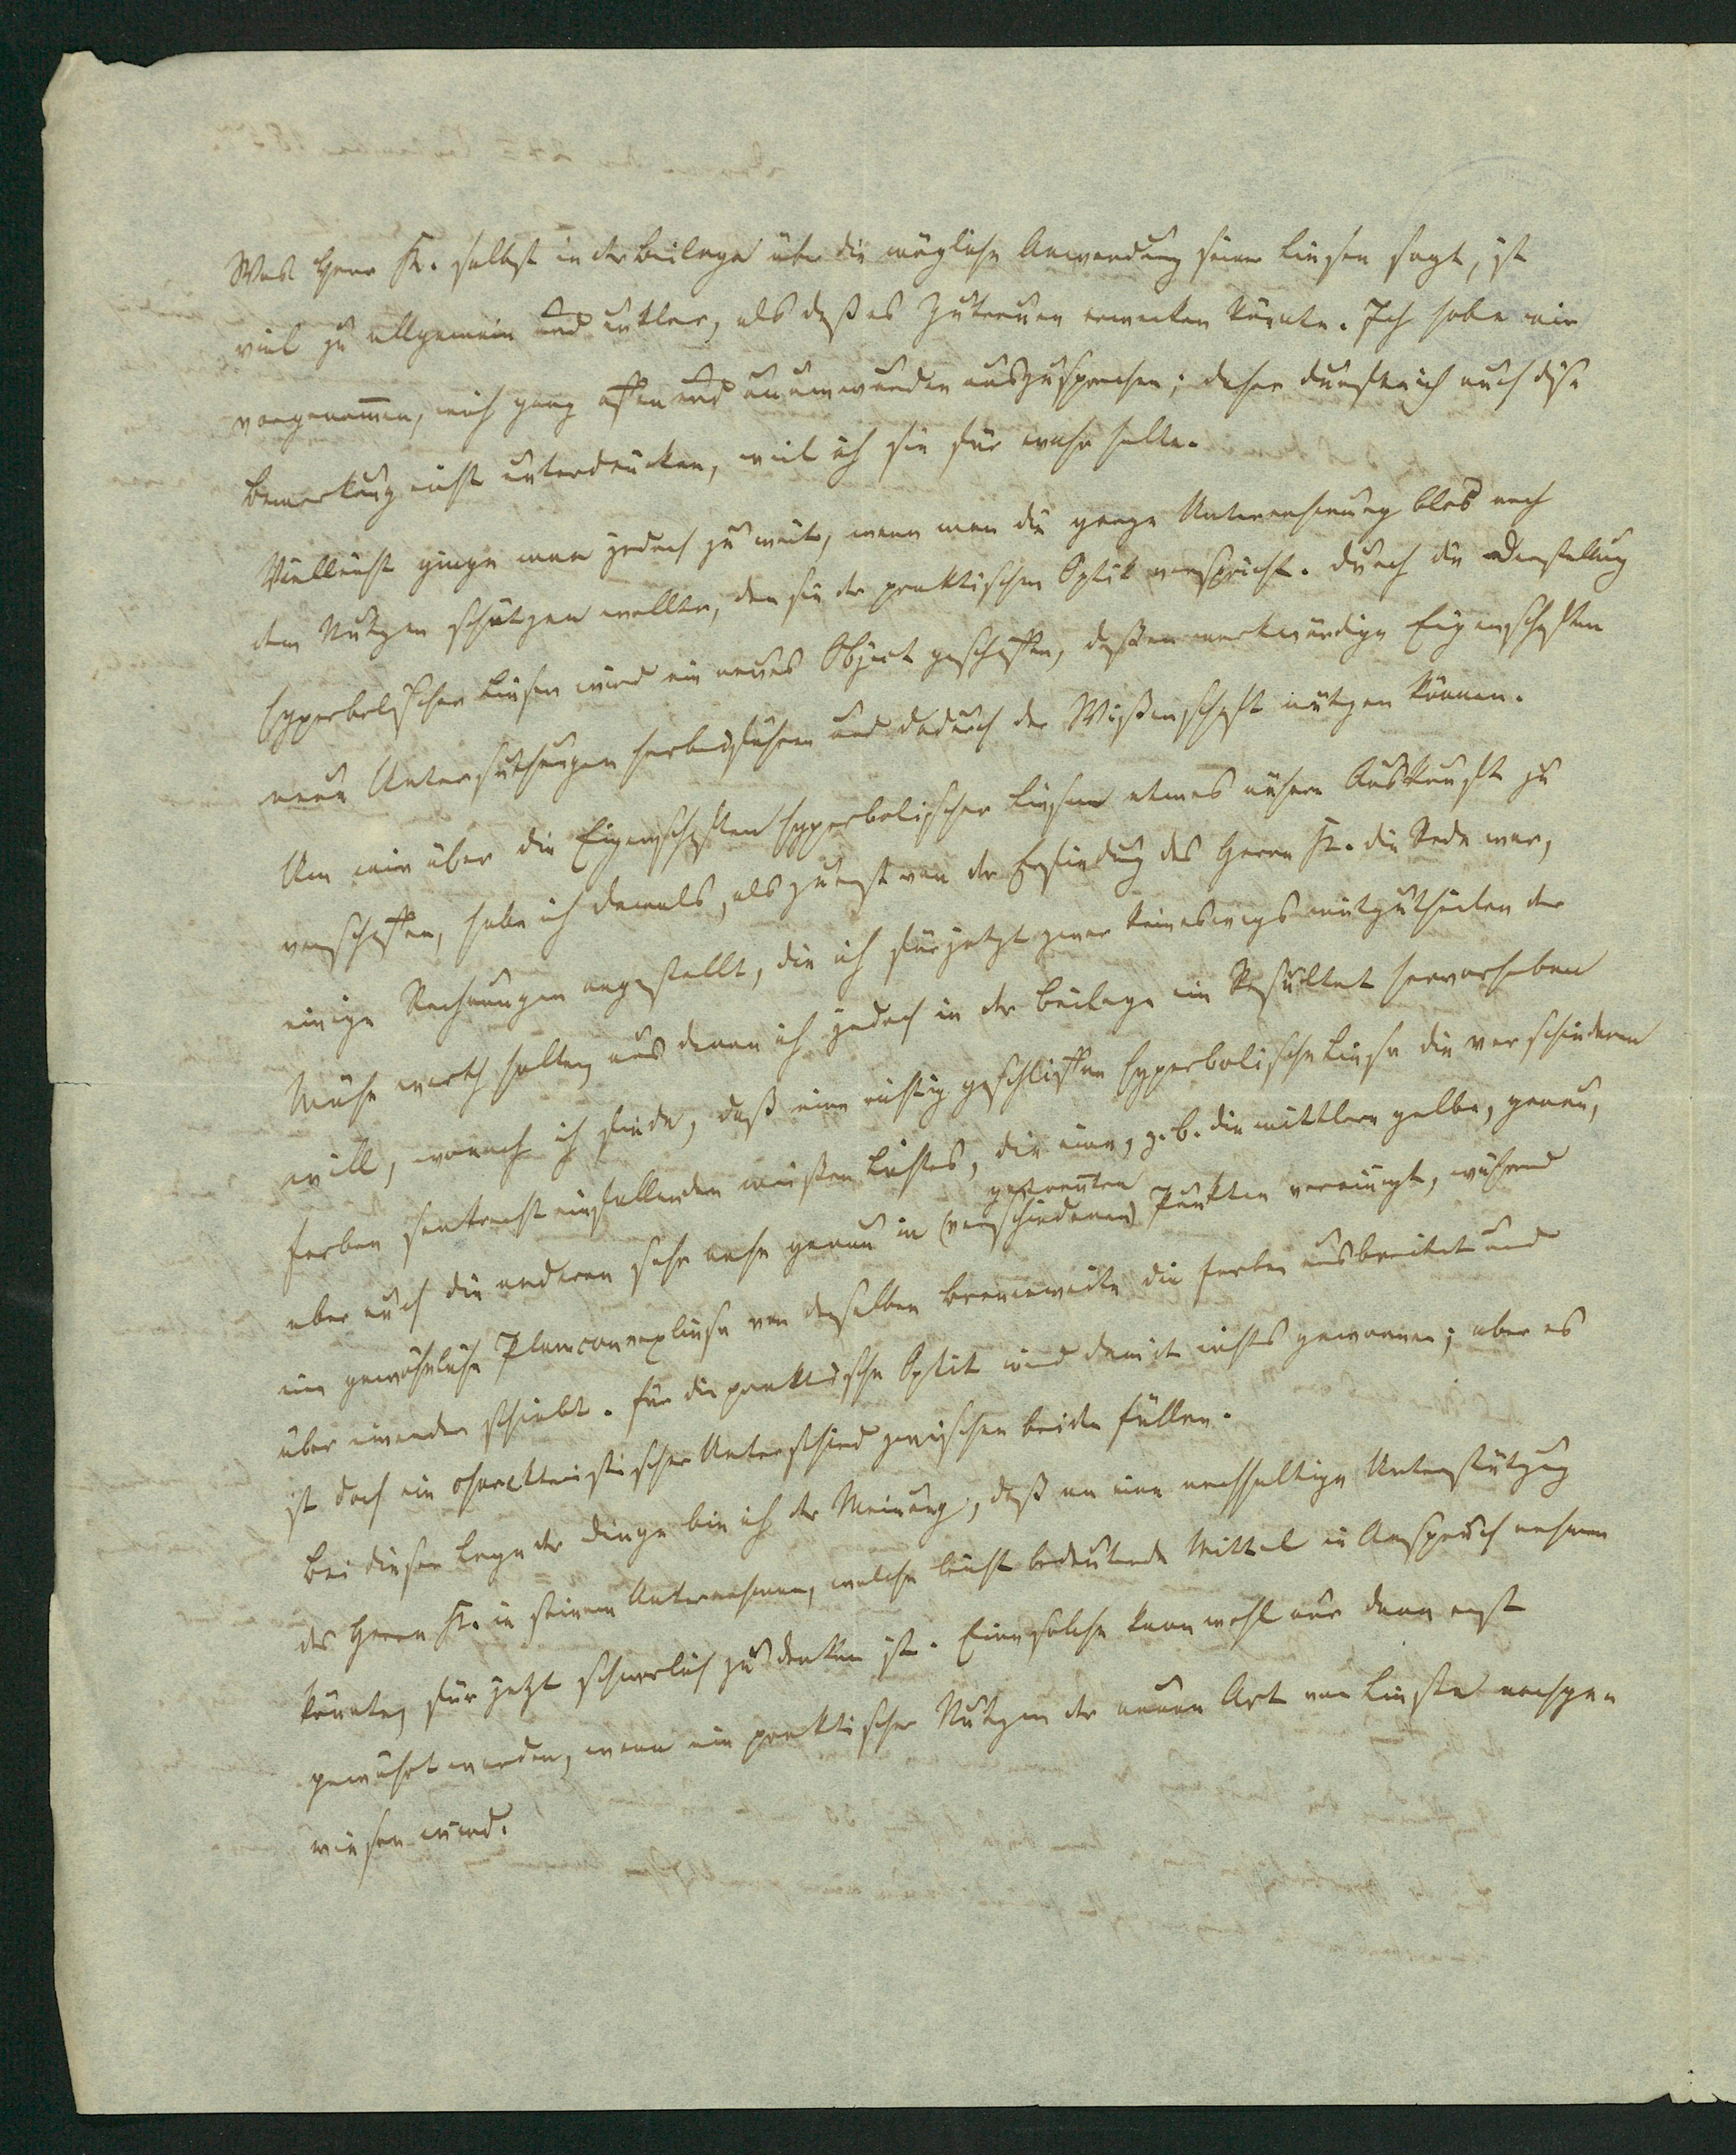 Was Herr K. selbst in der Beilage über die mögliche Anwendung seiner Linsen sagt, ist
viel zu allgemein und unklar, als daß es Zutrauen erwecken könnte. Ich habe mir
vorgenommen, mich ganz offen und unumwunden auszusprechen; daher durfte ich auch diese
Bemerkung nicht unterdrücken, weil ich sie für wahr halte.
Vielleicht ginge man jedoch zu weit, wenn man die ganze Unternehmung blos nach
dem Nutzen schätzen wollte, den sie der praktischen Optik verspricht. Durch die Darstellung
hyperbolischer Linsen wird ein neues Object geschaffen, dessen merkwürdige Eigenschaften
neue Untersuchungen herbeiführen und dadurch der Wißenschaft nützen können.
Um mir über die Eigenschaften hyperbolischer Linsen etwas nähere Auskunft zu
verschaffen, habe ich damals, als zuerst von der Erfindung des Herrn K. die Rede war,
einige Rechnungen angestellt, die ich für jetzt zwar keineswegs mitzutheilen der
Mühe werth halte, aus denen ich jedoch in der Beilage ein Resultat hervorheben
will, wonach ich finde, daß eine richtig geschliffene hyperbolische Linse die verschiedenen
Farben senkrecht einfallenden weißen Lichtes, die eine, z. B. die mittlere gelbe, genau,
aber auch die anderen sehr nahe genau in (verschiedenen) getrennten Punkten vereinigt, während
eine gewöhnliche Planconvexlinse von derselben Brennweite die Farben ausbreitet und
über einander schiebt. Für die praktische Optik wird damit nichts gewonnen; aber es
ist doch ein charakteristischer Unterschied zwischen beiden Fällen.
Bei dieser Lage der Dinge bin ich der Meinung, daß an eine nachhaltige Unterstützung
des Herrn K. in seinem Unternehmen, welche leicht bedeutende Mittel in Anspruch nehmen
könnte, für jetzt schwerlich zu denken ist. Eine solche kann wohl nur dann erst
gewährt werden, wenn ein praktischer Nutzen der neuen Art von Linsen nachge-
wiesen wird.